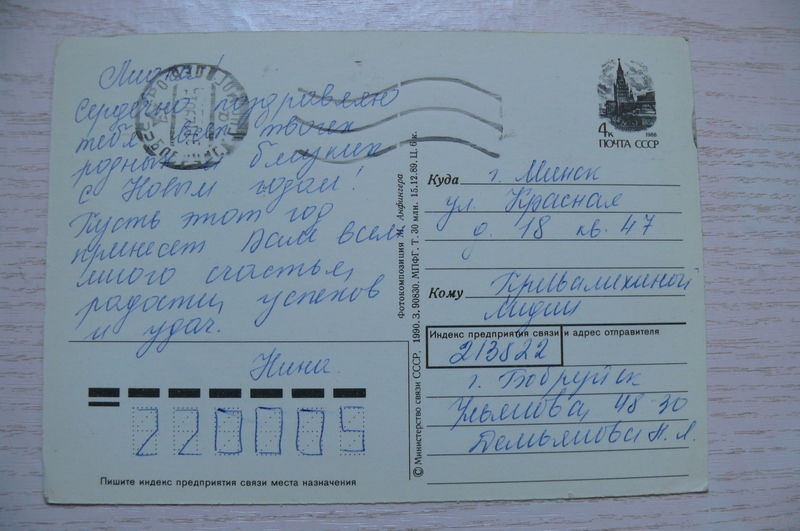 Лидия!
Сердечно поздравляю
тебя и всех твоих
родных и близких
с Новым годом!
Пусть этот год
принесет Вам всем
много счастья,
радости, успехов
и удач.
Нина.
220005
Пишите индекс предприятия связи места назначения
© Министерство связи СССР, 1990. З. 90830. МПФГ. Т. 30 млн. 15.12.89. Ц. 6 к.
Фотокомпозиция М. Анфингера
4к
1988
ПОЧТА СССР
Куда г. Минск
ул. Красная
д. 18 кв. 47
Кому
Лидии
Индекс предприятия связи и адрес отправителя
213822
г. Бобруйск
Ульянова, 48-30
Демьянова Н. Л.